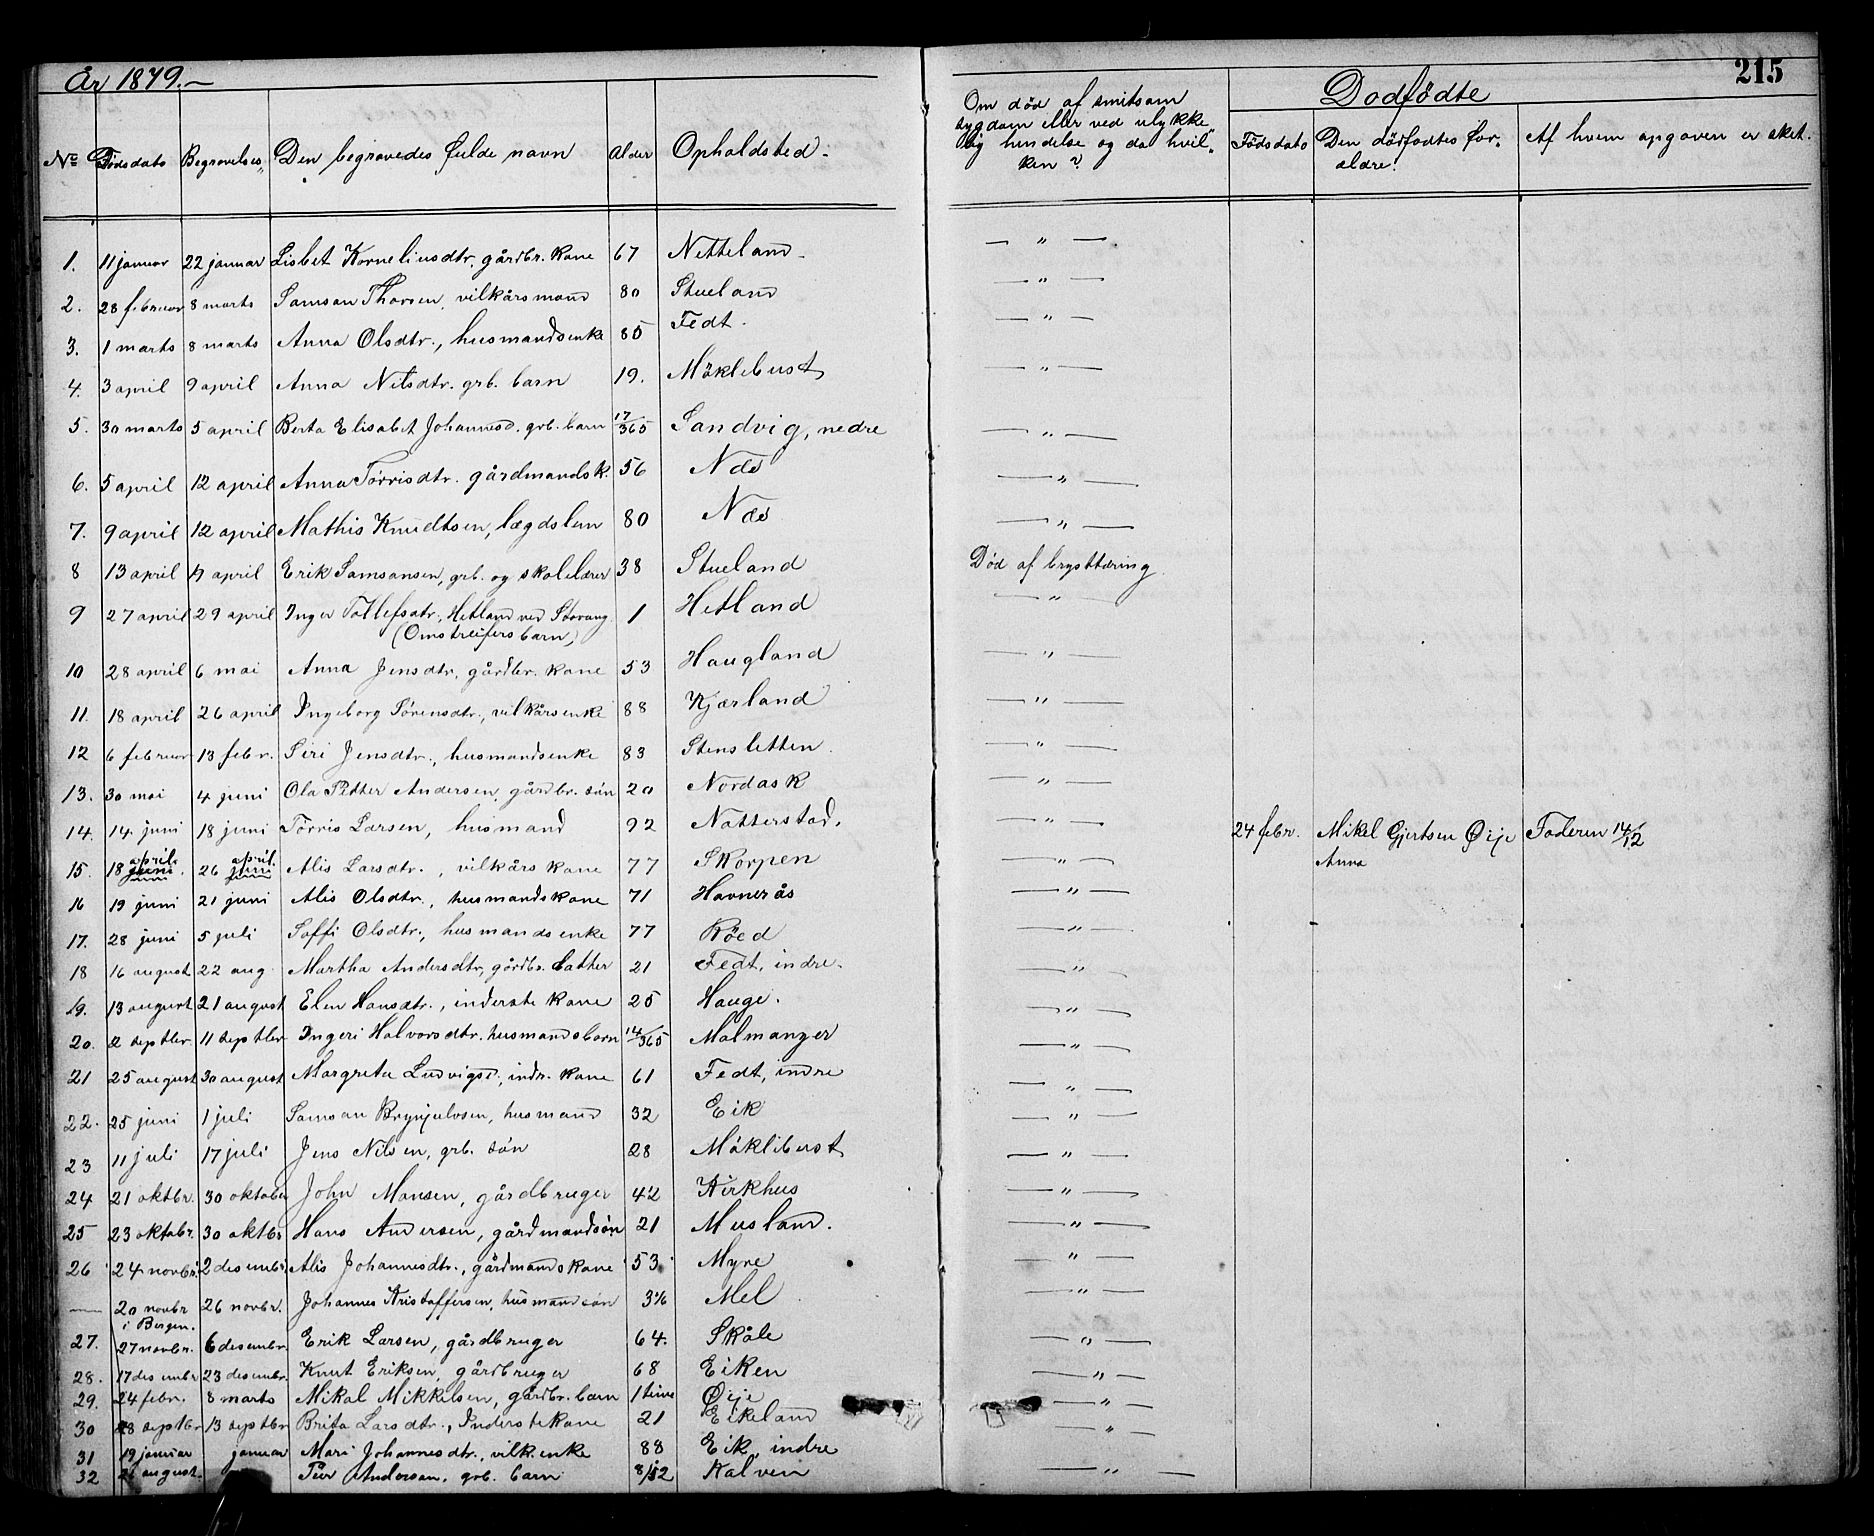 År 1879.
215
Dodfödte
Om död af smitsom
sygdom eller ved ulykke
lig hendelse og da hvil„
ken?
Nº Dödsdato Begravelses„ Den begravedes fulde navn Alder Opholdsted.
Födsdato Den dödfödtes for„ Af hvem opgaven er sket.
ældre.
1. 11 januar 22 januar Lisbet Korneliusdtr, gårdbr. kone 67 Netteland. — „ —
2. 28 februar 8 marts Samson Thorsen, vilkårsmand 80 Stueland — „ —
3. 1 marts 8 marts Anna Olsdtr., husmandsenke 85 Fedt. — „ —
4. 3 april 9 april Anna Nilsdtr. grb. barn 19. Möklebust — „ —
5. 30 marts 5 april Berta Elisabet Johannesd. grb. barn 17/365 Sandvig, nedre — „ —
6. 5 april 12 april Anna Tørrisdtr. gårdmandsk. 56 Næs — „ —
7. 9 april 12 april Mathis Knudtsen, lægdslem 80 Næs — „ —
8 13 april 17 april Erik Samsonsen, grb. og skolelærer 38 Stueland Død af brysttæring
9 27 april 29 april Inger Tollefsdtr., Hetland ved Stavang 1 Hetland — „ —
(Omstreifers barn)
10 28 april 6 mai Anna Jensdtr, gårdbr. kone 53 Haugland — „ —
11. 18 april 26 april Ingeborg Sørensdtr., vilkårsenke 88 Kjærland — „ —
12 6 februar 13 febr. Siri Jensdtr., husmandsenke 83 Stensletten. — „ —
13. 30 mai 4 juni Ola Petter Andersen, gårdbr. sön 20 Nordask — „ —
14. 14 juni 18 juni Törris Larsen, husmand 92 Natterstad. — „ — 24 febr. Mikel Gjertsen Øije Faderen 14/12
Anna
15. 18 april juni. 26 april. juni Alis Larsdtr., vilkårs kone 77 Skorpen — „ —
16 19 juni 21 juni Alis Olsdtr., husmandskone 71 Havnerås — „ —
17. 28 juni 5 juli Soffi Olsdtr., husmandsenke 77 Röed — „ —
18 16 august 22 aug. Martha Andersdtr, gårdbr. datter 21 Fedt, indre. — „ —
19. 13 august 21 august Elen Hansdtr., inderste kone 25 Hauge. — „ —
20. 2 septbr 11 septbr Ingeri Halvorsdtr. husmandsbarn 14/365 Malmanger — „ —
21 25 august 30 august Margreta Ludvigsd., indr. kone 61 Fedt, indre — „ —
22. 25 juni 1 juli Samson Brynjulvsen, husmand 32 Eik — „ —
23 11 juli 17 juli Jens Nilsen, grb. sön 28 Möklibust — „ —
24 21 oktbr. 30 oktober John Monsen, gårdbruger 42 Kirkhus — „ —
25 23 oktobr. 30 oktbr Hans Andersen, gårdmandsön 21 Musland. — „ —
26 24 novbr. 2 desembr. Alis Johannesdtr., gårdmandskone 53 Myre — „ —
— 20 novbr 26 novbr. Johannes Kristoffersen, husmandsön Mel — „ —
i Bergen.
27. 27 novbr. 6 desembr. Erik Larsen, gårdbruger 64. Skåle — „ —
28. 17 desembr 23 desembr. Knut Eriksen, gårdbruger 68 Eiken — „ —
29. 24 febr. 8 marts Mikal Mikkelsen, gårdbr. barn 1 time Øije — „ —
30 septbr 13 septbr Brita Larsdtr., Inderstekone 21 Eikeland — „ —
31 19 januar januar Mari Johannesdtr., vilk. enke 88 Eik, indre
32 august. Peer Anderson, grb. barn 8/12 Kalven — „ —